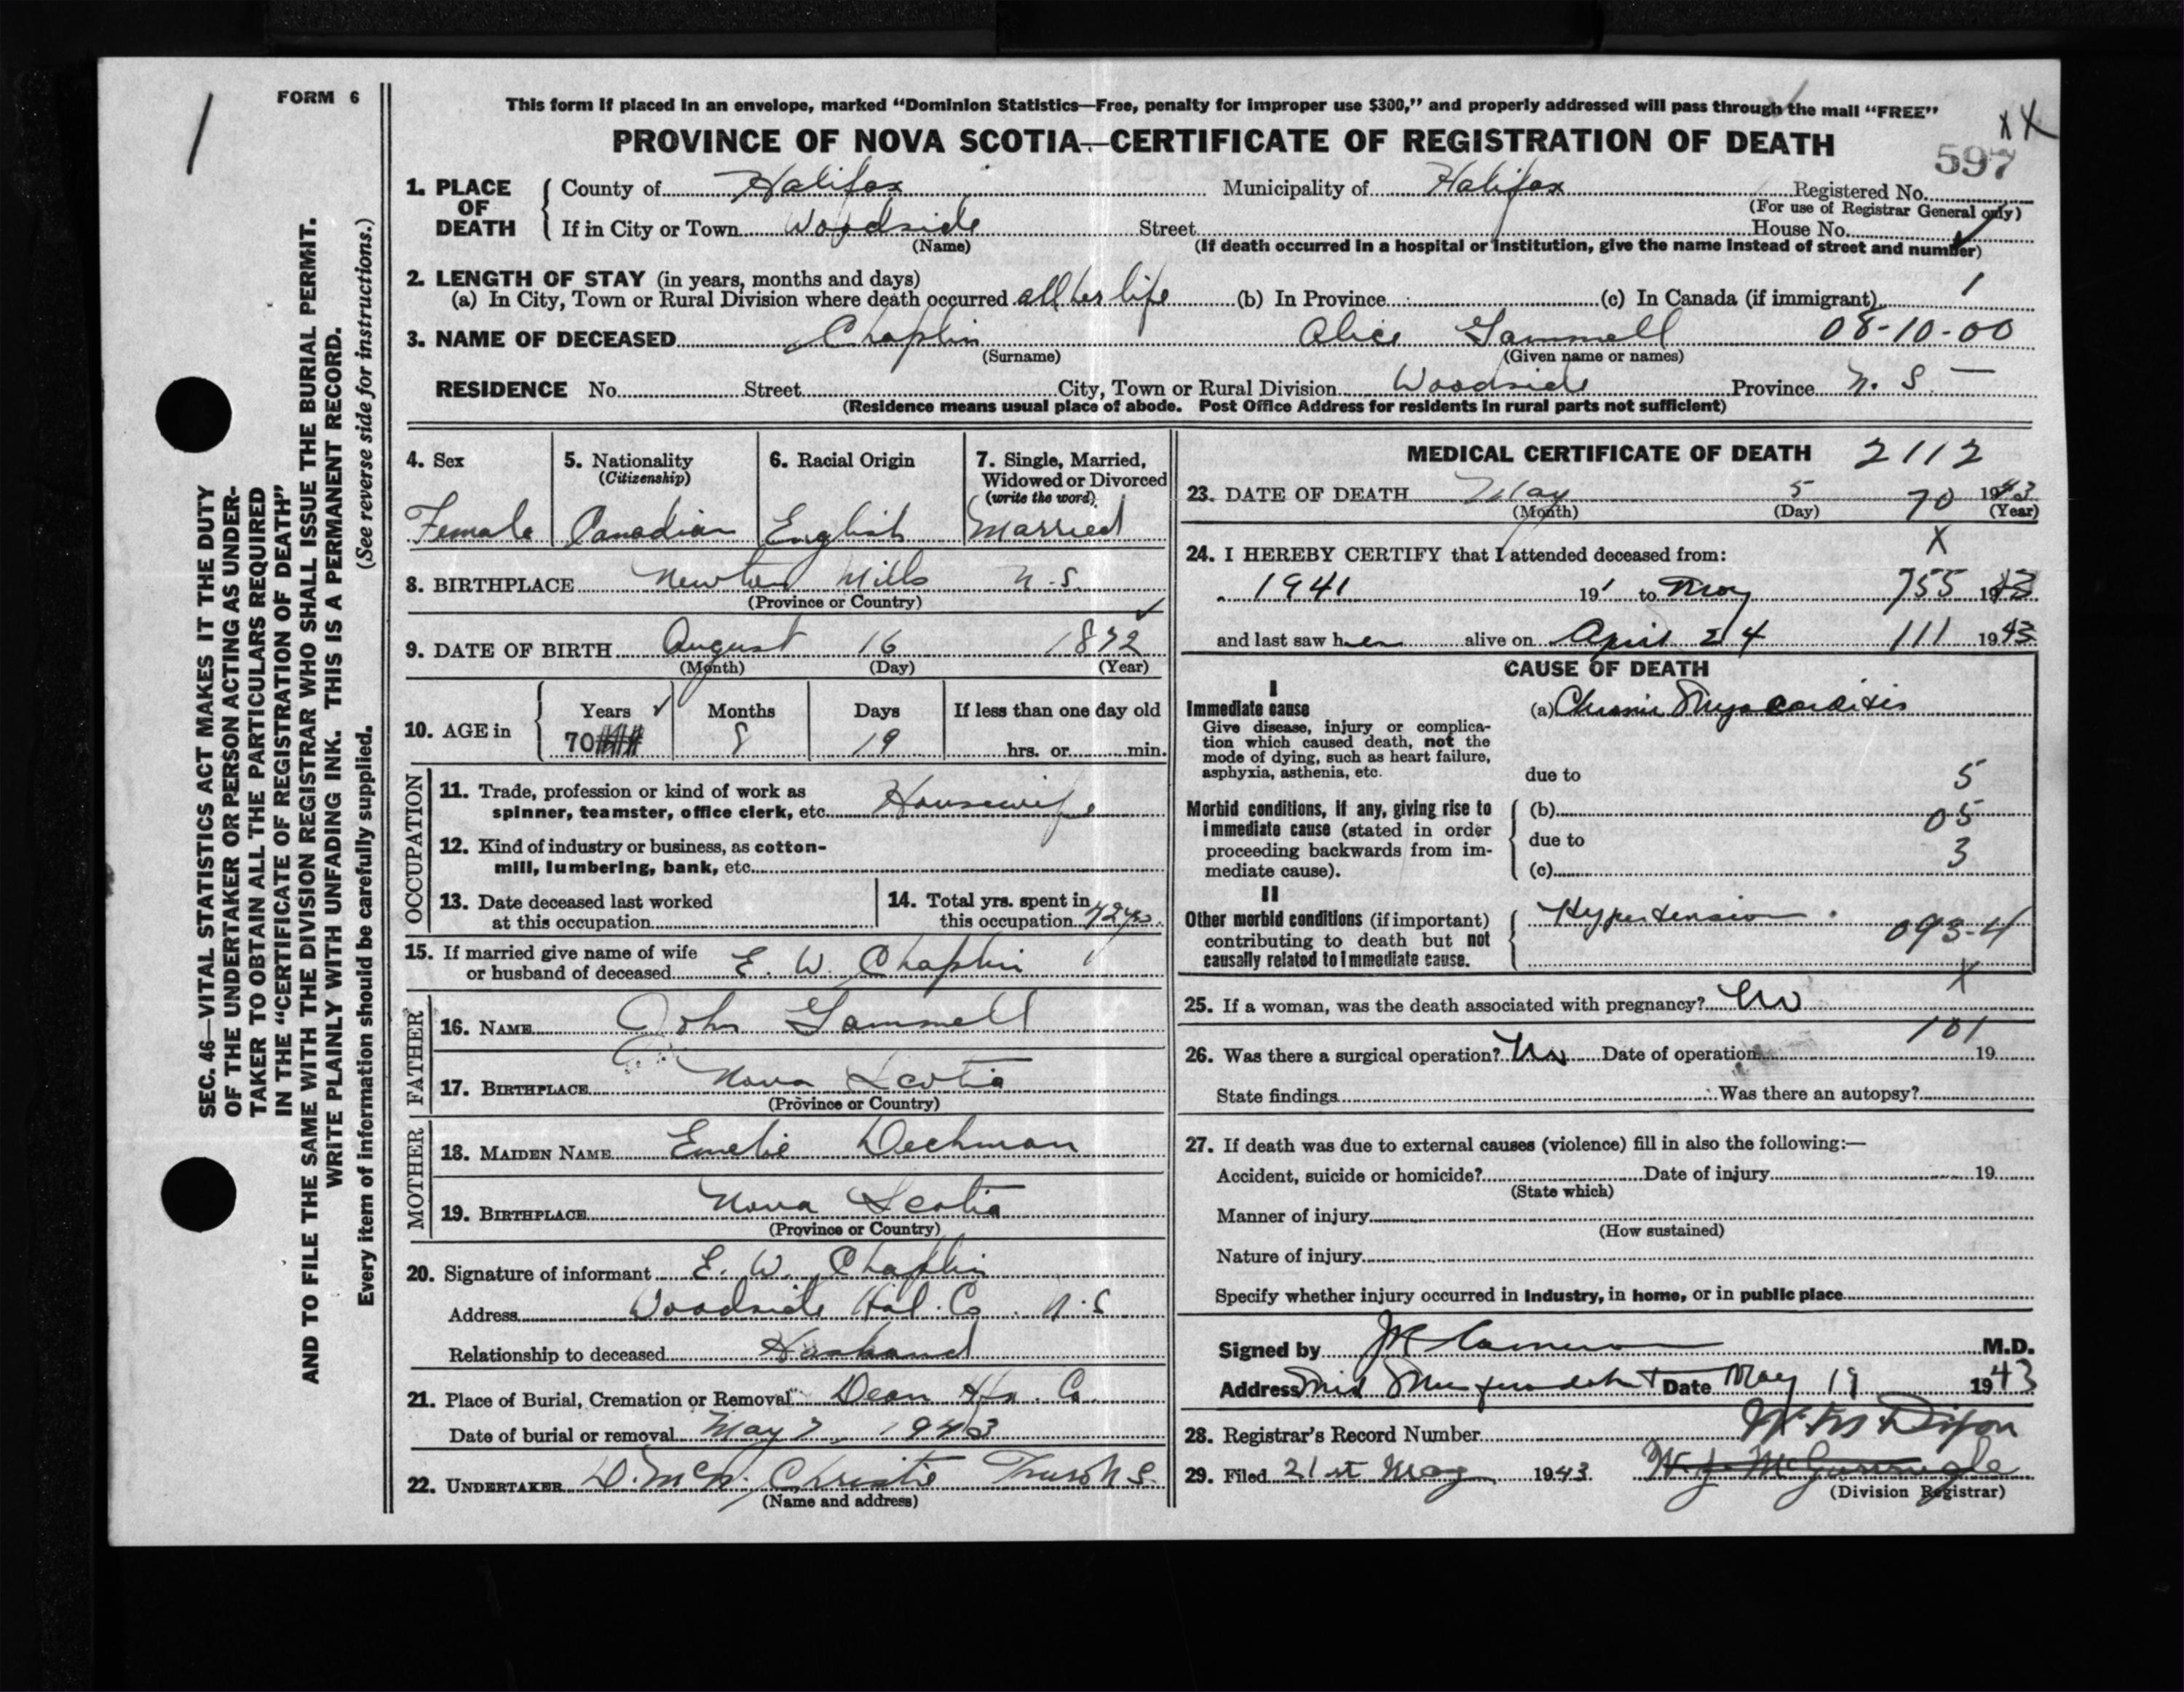 FORM 6
1
This form if placed in an envelope, marked “Dominion Statistics—Free, penalty for improper use $300,” and properly addressed will pass through the mail “FREE”
PROVINCE OF NOVA SCOTIA—CERTIFICATE OF REGISTRATION OF DEATH
XX
597
1. PLACE OF DEATH
County of Halifax Municipality of Halifax Registered No.
(For use of Registrar General only)
If in City or Town Woodside Street House No.
(Name) (If death occurred in a hospital or institution, give the name instead of street and number)
2. LENGTH OF STAY (in years, months and days)
(a) In City, Town or Rural Division where death occurred all her life (b) In Province (c) In Canada (if immigrant) 1
3. NAME OF DECEASED Chaplin Alice Gammell 08-10-00
(Surname) (Given name or names)
RESIDENCE No. Street City, Town or Rural Division Woodside Province N. S. —
(Residence means usual place of abode. Post Office Address for residents in rural parts not sufficient)
4. Sex
Female
5. Nationality
(Citizenship)
Canadian
6. Racial Origin
English
7. Single, Married,
Widowed or Divorced
(write the word)
Married
8. BIRTHPLACE Newton Mills N.S.
(Province or Country)
9. DATE OF BIRTH August 16 1872
(Month) (Day) (Year)
10. AGE in
Years Months Days If less than one day old
70 8 19 hrs. or min.
OCCUPATION
11. Trade, profession or kind of work as
spinner, teamster, office clerk, etc. Housewife
12. Kind of industry or business, as cotton-
mill, lumbering, bank, etc.
13. Date deceased last worked
at this occupation
14. Total yrs. spent in
this occupation 42 yrs.
15. If married give name of wife
or husband of deceased E. W. Chaplin
FATHER
16. NAME John Gammell
17. BIRTHPLACE Nova Scotia
(Province or Country)
MOTHER
18. MAIDEN NAME Emelie Dechman
19. BIRTHPLACE Nova Scotia
(Province or Country)
20. Signature of informant E. W. Chaplin
Address Woodside Hal. Co. N.S
Relationship to deceased Husband
21. Place of Burial, Cremation or Removal Dean Hfx. Co.
Date of burial or removal May 7, 1943
22. UNDERTAKER D. McN. Christie Truro N.S.
(Name and address)
MEDICAL CERTIFICATE OF DEATH 2112
23. DATE OF DEATH May 5 70 1943
(Month) (Day) (Year)
X
24. I HEREBY CERTIFY that I attended deceased from:
1941 19 to May 755 1943
and last saw her alive on April 24 111 1943
CAUSE OF DEATH
I
Immediate cause
Give disease, injury or complica-
tion which caused death, not the
mode of dying, such as heart failure,
asphyxia, asthenia, etc.
(a) Chronic Myocarditis
due to 5
Morbid conditions, if any, giving rise to
immediate cause (stated in order
proceeding backwards from im-
mediate cause).
(b) 05
due to
3
(c)
II
Other morbid conditions (if important)
contributing to death but not
causally related to immediate cause.
Hypertension. 093-4
X
25. If a woman, was the death associated with pregnancy? No
101
26. Was there a surgical operation? No Date of operation 19
State findings Was there an autopsy?
27. If death was due to external causes (violence) fill in also the following:—
Accident, suicide or homicide? Date of injury 19
(State which)
Manner of injury
(How sustained)
Nature of injury
Specify whether injury occurred in industry, in home, or in public place
Signed by Cameron M.D.
Address Mid Musquodoboit Date May 19 1943
28. Registrar's Record Number
Dixon
29. Filed 21st May 1943.
(Division Registrar)
SEC. 46—VITAL STATISTICS ACT MAKES IT THE DUTY
OF THE UNDERTAKER OR PERSON ACTING AS UNDER-
TAKER TO OBTAIN ALL THE PARTICULARS REQUIRED
IN THE “CERTIFICATE OF REGISTRATION OF DEATH”
AND TO FILE THE SAME WITH THE DIVISION REGISTRAR WHO SHALL ISSUE THE BURIAL PERMIT.
WRITE PLAINLY WITH UNFADING INK. THIS IS A PERMANENT RECORD.
Every item of information should be carefully supplied. (See reverse side for instructions.)